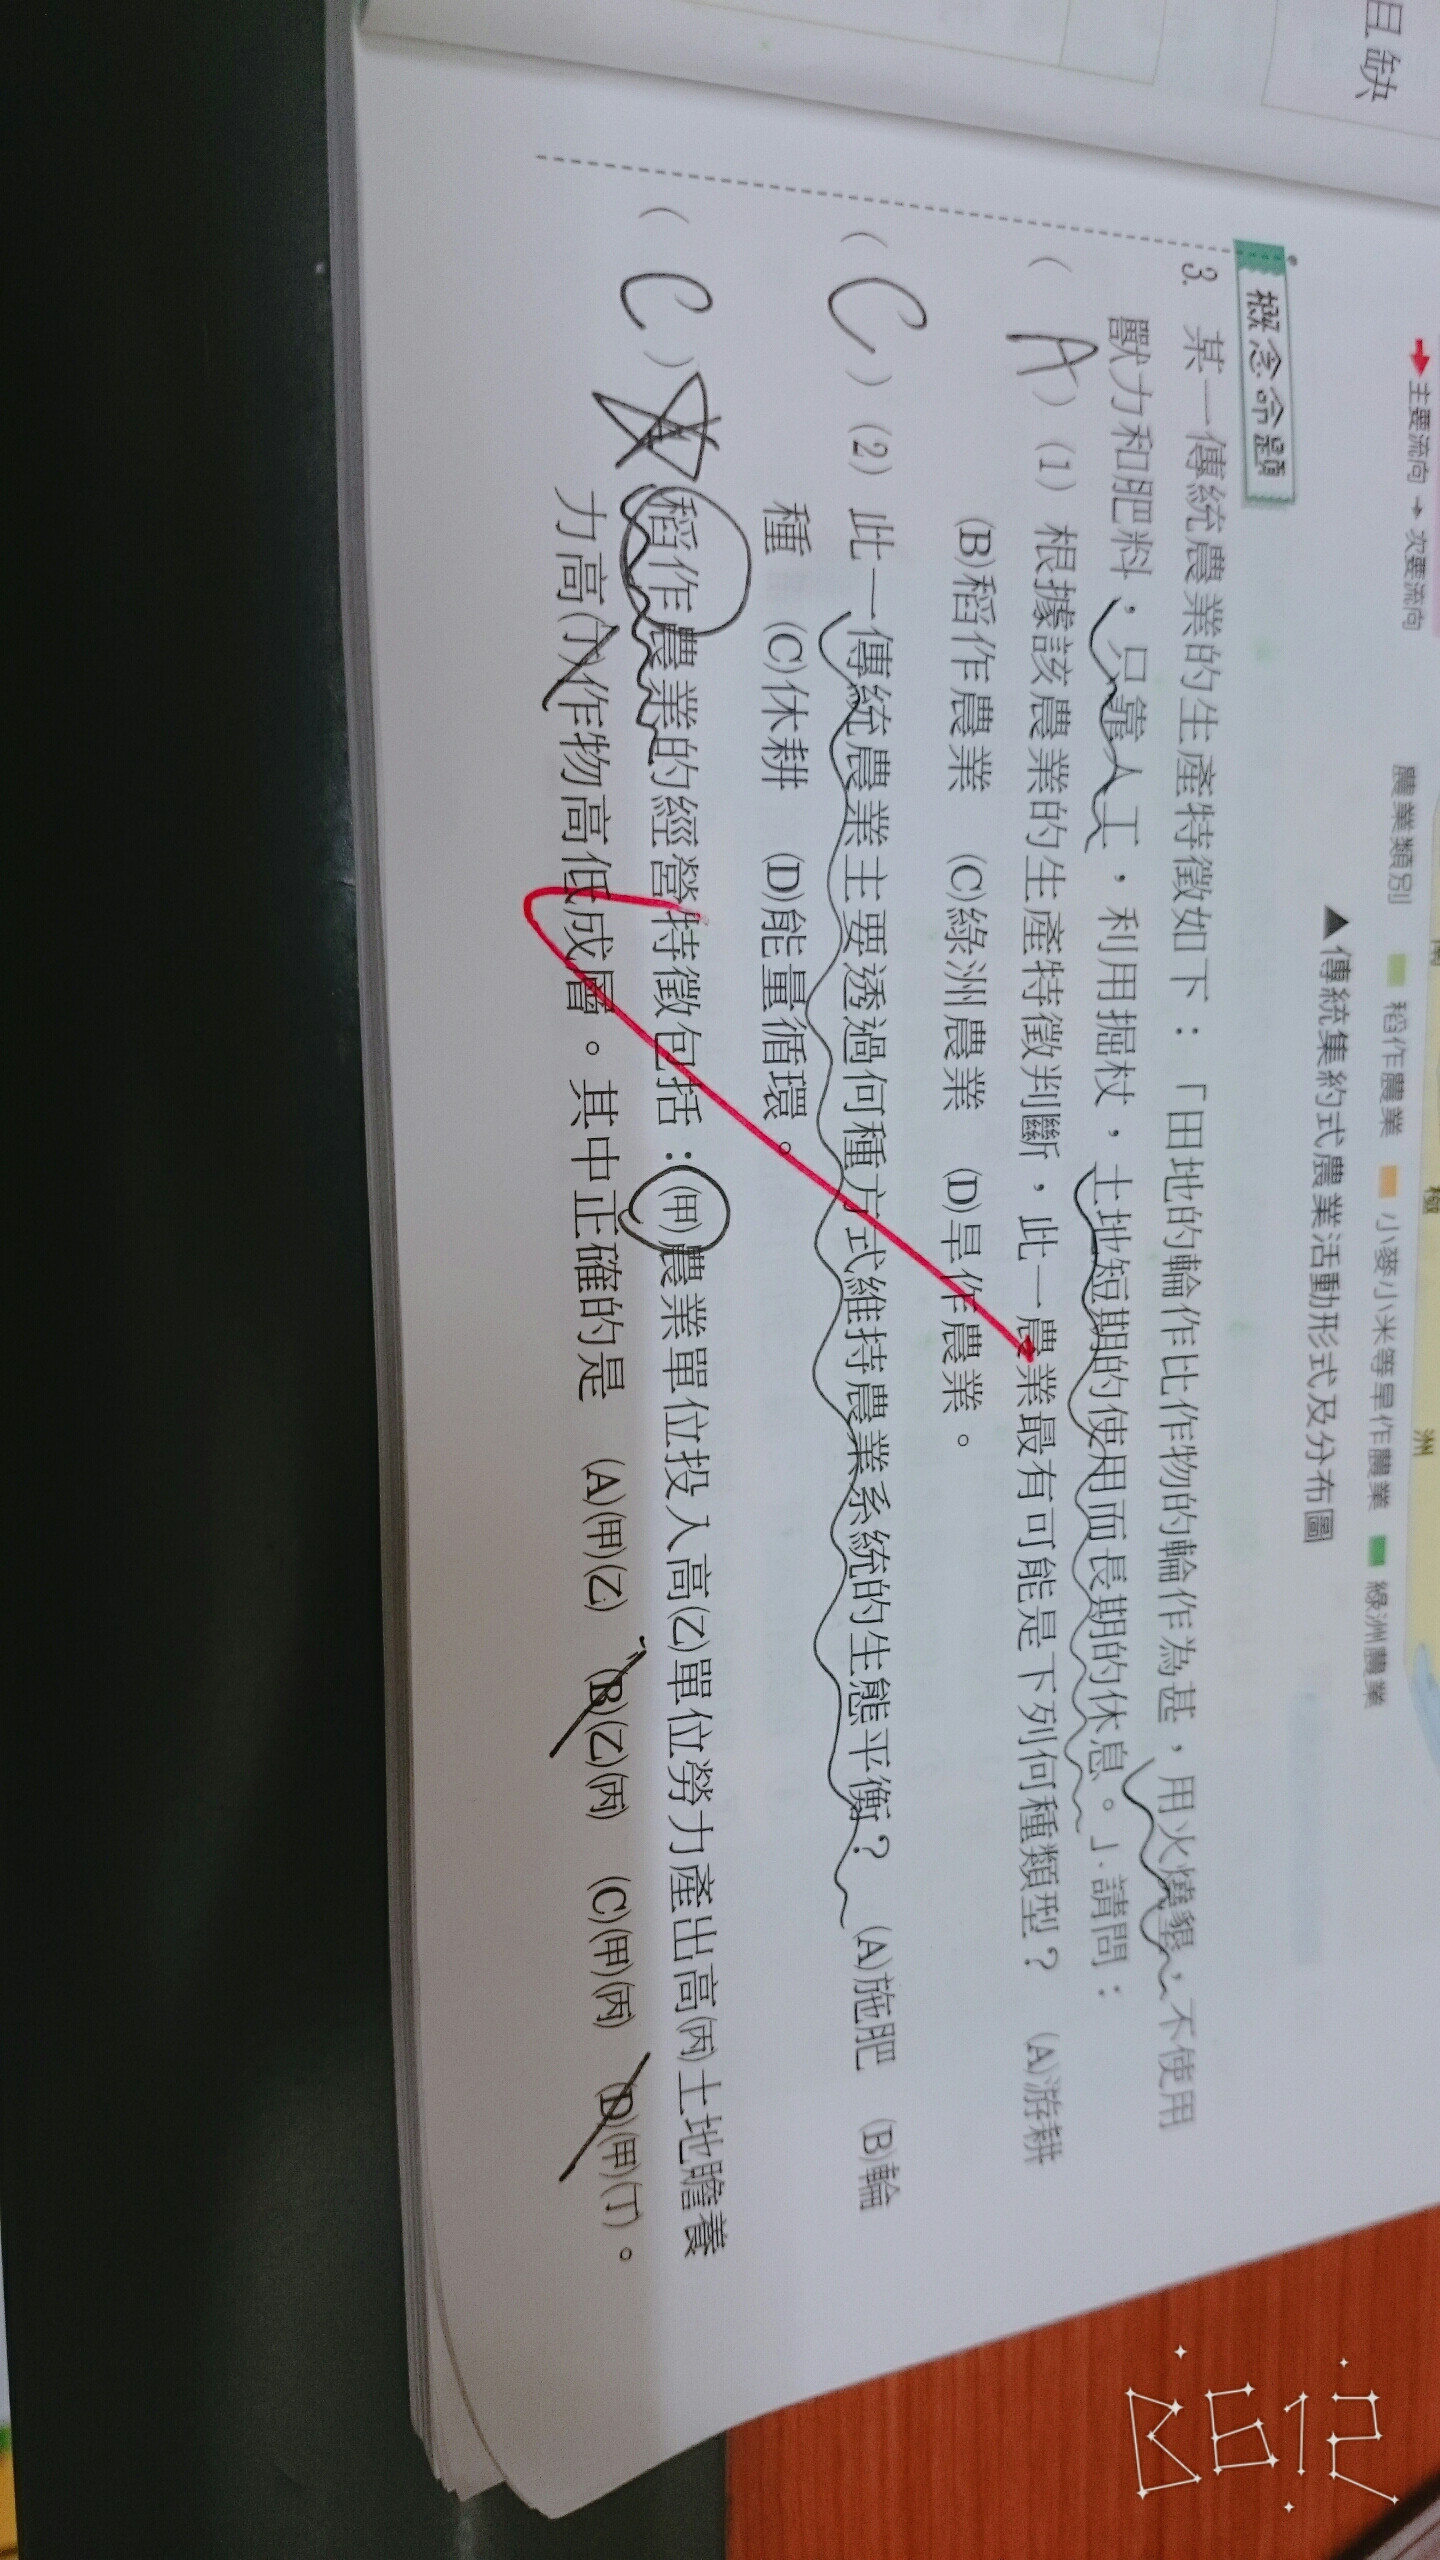 且缺
主要流向 次要流向
農業類別 稻作農業 小麥小米等旱作農業 綠洲農業
洲
▲傳統集約式農業活動形式及分布圖
概念命題
3. 某一傳統農業的生產特徵如下：「田地的輪作比作物的輪作為甚，用火燒墾，不使用
獸力和肥料，只靠人工，利用掘杖，土地短期的使用而長期的休息。」請問：
( A ) (1) 根據該農業的生產特徵判斷，此一農業最有可能是下列何種類型？ (A)游耕
(B)稻作農業 (C)綠洲農業 (D)旱作農業。
( C ) (2) 此一傳統農業主要透過何種方式維持農業系統的生態平衡？ (A)施肥 (B)輪
種 (C)休耕 (D)能量循環。
( C ) 稻作農業的經營特徵包括：(甲)農業單位投入高(乙)單位勞力產出高(丙)土地贍養
力高(丁)作物高低成層。其中正確的是 (A)(甲)(乙) (B)(乙)(丙) (C)(甲)(丙) (D)(甲)(丁)。
B612